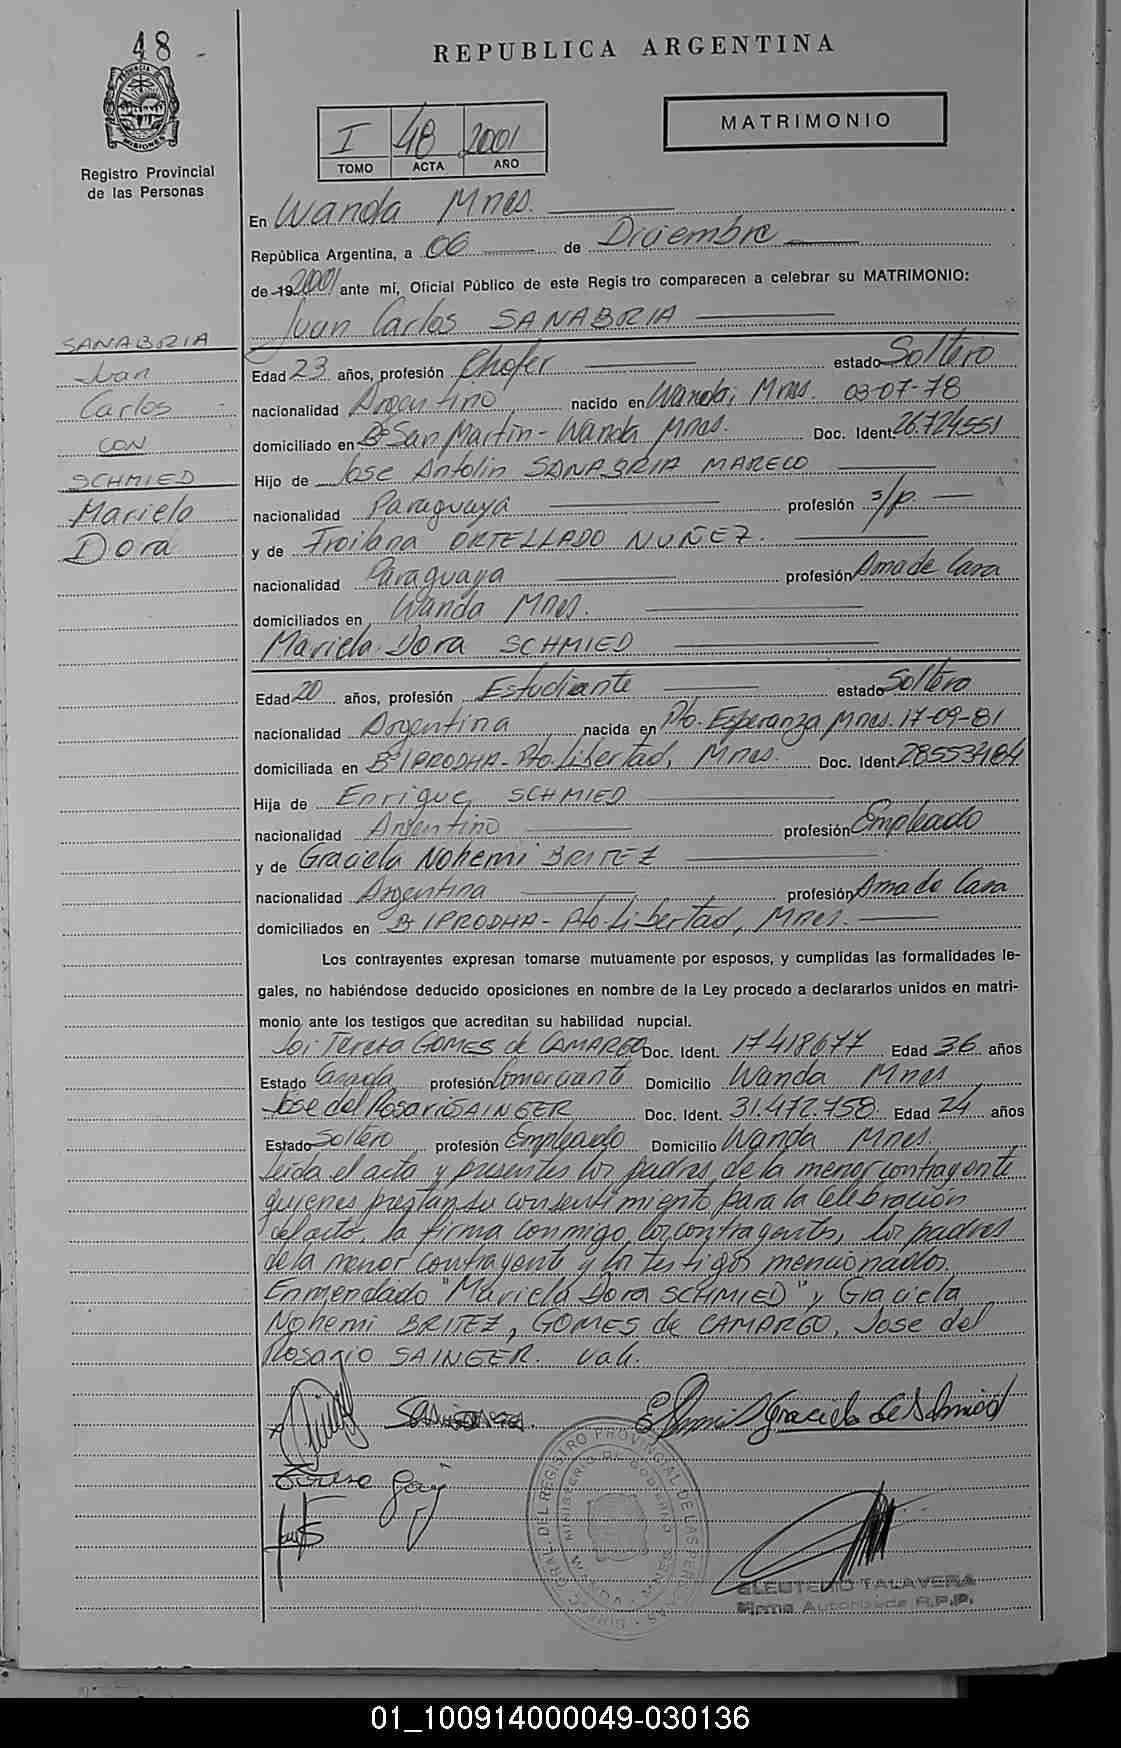 48
REPUBLICA ARGENTINA
PROVINCIA DE MISIONES
Registro Provincial
de las Personas
I 48 2001
TOMO ACTA AÑO
MATRIMONIO
En Wanda Mnes.
República Argentina, a 06 de Diciembre
de 19 2001 ante mí, Oficial Público de este Regis tro comparecen a celebrar su MATRIMONIO:
Juan Carlos SANABRIA
SANABRIA
Juan
Carlos
CON
SCHMIED
Mariela
Dora
Edad 23 años, profesión Chofer estado Soltero
nacionalidad Argentino nacido en Wanda, Mnes. 03-07-78
domiciliado en Bº San Martin - Wanda Mnes. Doc. Ident. 26.724551
Hijo de Jose Antolin SANABRIA MARECO
nacionalidad Paraguaya profesión s/p.
y de Froilana ORTELLADO NUÑEZ.
nacionalidad Paraguaya profesión Ama de Casa
domiciliados en Wanda Mnes.
Mariela Dora SCHMIED
Edad 20 años, profesión Estudiante estado Soltera
nacionalidad Argentina nacida en Pto. Esperanza, Mnes. 17-09-81
domiciliada en Bº IPRODHA - Pto. Libertad, Mnes. Doc. Ident.
Hija de Enrique SCHMIED
nacionalidad Argentino profesión Empleado
y de Graciela Nohemi BRITEZ
nacionalidad Argentina profesión Ama de Casa
domiciliados en Bº IPRODHA - Pto. Libertad, Mnes.
Los contrayentes expresan tomarse mutuamente por esposos, y cumplidas las formalidades le-
gales, no habiéndose deducido oposiciones en nombre de la Ley procedo a declararlos unidos en matri-
monio ante los testigos que acreditan su habilidad nupcial.
Tereza GOMES de CAMARGO Doc. Ident. 17418677 Edad 36 años
Estado Casada profesión Comerciante Domicilio Wanda Mnes
Jose del Rosario SAINGER Doc. Ident. 31.472.758 Edad 24 años
Estado Soltero profesión Empleado Domicilio Wanda Mnes.
Leida el acta y presentes los padres de la menor contrayente
quienes prestan su consentimiento para la celebración
del acto, la firma conmigo, los contrayentes, los padres
de la menor contrayente y los testigos mencionados.
Enmendado "Mariela Dora SCHMIED" y Graciela
Nohemi BRITEZ, GOMES de CAMARGO, Jose del
Rosario SAINGER. Vale.
Graciela de Schmied
ELEUTERIO TALAVERA
Firma Autorizada R.P.P.
01_100914000049-030136